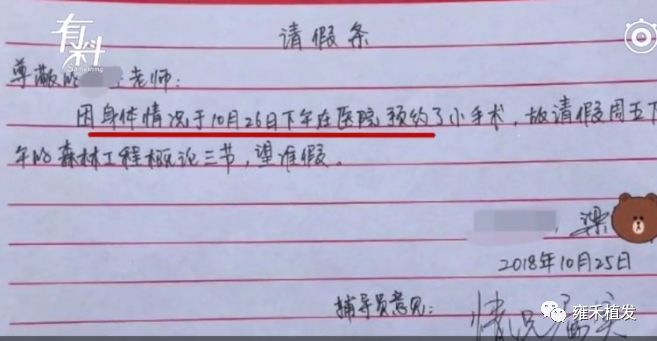 有料
Something
请假条
尊敬的 老师：
因身体情况于10月26日下午在医院预约了小手术，故请假周五下
午的森林工程概论三节，望准假。
梁
2018年10月25日
辅导员意见：情况属实
雍禾植发